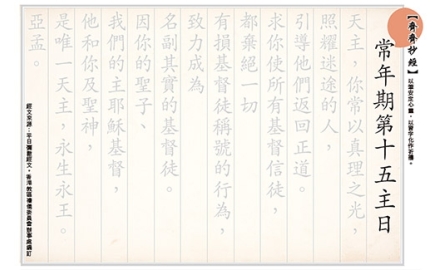 【齊齊抄經】以筆安定心靈,以書字化作祈禱。
常年期第十五主日
天主,你常以真理之光,
照耀迷途的人,
引導他們返回正道。
求你使所有基督信徒,
都棄絕一切
有損基督徒稱號的行為,
致力成為
名副其實的基督徒。
因你的聖子、
我們的主耶穌基督,
他和你及聖神,
是唯一天主,永生永王。
亞孟。
經文來源:平日彌撒經文。香港教區禮儀委員會辦事處編訂